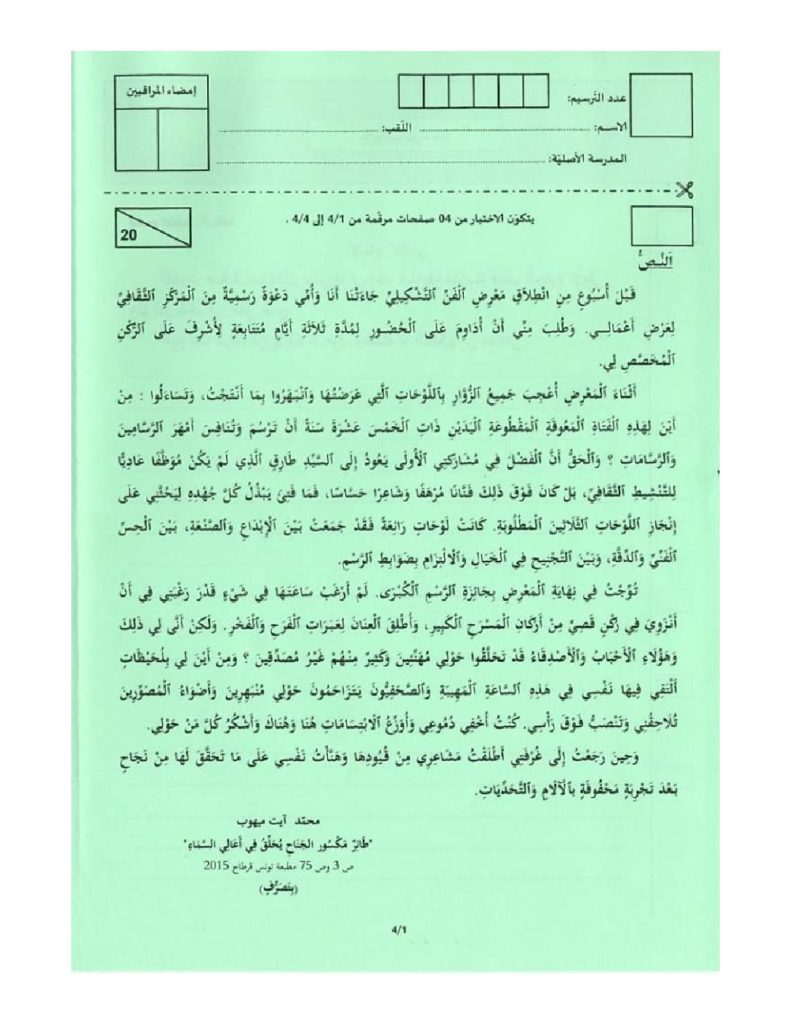 إمضاء المراقبين
عدد الترسيم:
الاسم: ........................ اللقب: ........................
المدرسة الأصلية: ........................
20
يتكوّن الاختبار من 04 صفحات مرقّمة من 4/1 إلى 4/4 .
اَلنَّصُّ
قَبْلَ أُسْبُوعٍ مِنِ انْطِلَاقِ مَعْرِضِ الْفَنِّ التَّشْكِيلِيِّ جَاءَتْنَا أَنَا وَأُمِّي دَعْوَةٌ رَسْمِيَّةٌ مِنَ الْمَرْكَزِ الثَّقَافِيِّ
لِعَرْضِ أَعْمَالِــي. وَطُلِبَ مِنِّي أَنْ أُدَاوِمَ عَلَى الْحُضُورِ لِمُدَّةِ ثَلَاثَةِ أَيَّامٍ مُتَتَابِعَةٍ لِأُشْرِفَ عَلَى الرُّكْنِ
الْمُخَصَّصِ لِي.
أَثْنَاءَ الْمَعْرِضِ أُعْجِبَ جَمِيعُ الزُّوَّارِ بِاللَّوْحَاتِ الَّتِي عَرَضْتُهَا وَانْبَهَرُوا بِمَا أَنْتَجْتُ، وَتَسَاءَلُوا : مِنْ
أَيْنَ لِهَذِهِ الْفَتَاةِ الْمَعُوقَةِ الْمَقْطُوعَةِ الْيَدَيْنِ ذَاتِ الْخَمْسَ عَشْرَةَ سَنَةً أَنْ تَرْسُمَ وَتُنَافِسَ أَمْهَرَ الرَّسَّامِينَ
وَالرَّسَّامَاتِ ؟ وَالْحَقُّ أَنَّ الْفَضْلَ فِي مُشَارَكَتِي الْأُولَى يَعُودُ إِلَى السَّيِّدِ طَارِقٍ الَّذِي لَمْ يَكُنْ مُوَظَّفًا عَادِيًّا
لِلتَّنْشِيطِ الثَّقَافِيِّ، بَلْ كَانَ فَوْقَ ذَلِكَ فَنَّانًا مُرْهَفًا وَشَاعِرًا حَسَّاسًا، فَمَا فَتِئَ يَبْذُلُ كُلَّ جُهْدِهِ لِيَحُثَّنِي عَلَى
إِنْجَازِ اللَّوْحَاتِ الثَّلَاثِينَ الْمَطْلُوبَةِ. كَانَتْ لَوْحَاتٍ رَائِعَةً فَقَدْ جَمَعَتْ بَيْنَ الْإِبْدَاعِ وَالصَّنْعَةِ، بَيْنَ الْحِسِّ
الْفَنِّيِّ وَالدِّقَّةِ، وَبَيْنَ التَّجْنِيحِ فِي الْخَيَالِ وَالِالْتِزَامِ بِضَوَابِطِ الرَّسْمِ.
تُوِّجْتُ فِي نِهَايَةِ الْمَعْرِضِ بِجَائِزَةِ الرَّسْمِ الْكُبْرَى. لَمْ أَرْغَبْ سَاعَتَهَا فِي شَيْءٍ قَدْرَ رَغْبَتِي فِي أَنْ
أَنْزَوِيَ فِي رُكْنٍ قَصِيٍّ مِنْ أَرْكَانِ الْمَسْرَحِ الْكَبِيرِ، وَأُطْلِقَ الْعِنَانَ لِعَبَرَاتِ الْفَرَحِ وَالْفَخْرِ. وَلَكِنْ أَنَّى لِي ذَلِكَ
وَهَؤُلَاءِ الْأَحْبَابُ وَالْأَصْدِقَاءُ قَدْ تَحَلَّقُوا حَوْلِي مُهَنِّئِينَ وَكَثِيرٌ مِنْهُمْ غَيْرُ مُصَدِّقِينَ ؟ وَمِنْ أَيْنَ لِي بِلُحَيْظَاتٍ
أَلْتَقِي فِيهَا نَفْسِي فِي هَذِهِ السَّاعَةِ الْمَهِيبَةِ وَالصَّحَفِيُّونَ يَتَزَاحَمُونَ حَوْلِي مُنْبَهِرِينَ وَأَضْوَاءُ الْمُصَوِّرِينَ
تُلَاحِقُنِي وَتَنْصَبُّ فَوْقَ رَأْسِي. كُنْتُ أُخْفِي دُمُوعِي وَأُوَزِّعُ الِابْتِسَامَاتِ هُنَا وَهُنَاكَ وَأَشْكُرُ كُلَّ مَنْ حَوْلِي.
وَحِينَ رَجَعْتُ إِلَى غُرْفَتِي أَطْلَقْتُ مَشَاعِرِي مِنْ قُيُودِهَا وَهَنَّأْتُ نَفْسِي عَلَى مَا تَحَقَّقَ لَهَا مِنْ نَجَاحٍ
بَعْدَ تَجْرِبَةٍ مَحْفُوفَةٍ بِالْآلَامِ وَالتَّحَدِّيَاتِ.
محمّد آيت ميهوب
"طَائِرٌ مَكْسُورُ الجَنَاحِ يُحَلِّقُ فِي أَعَالِي السَّمَاءِ"
ص 3 وص 75 مطبعة تونس قرطاج 2015
(بِتَصَرُّفٍ)
4/1